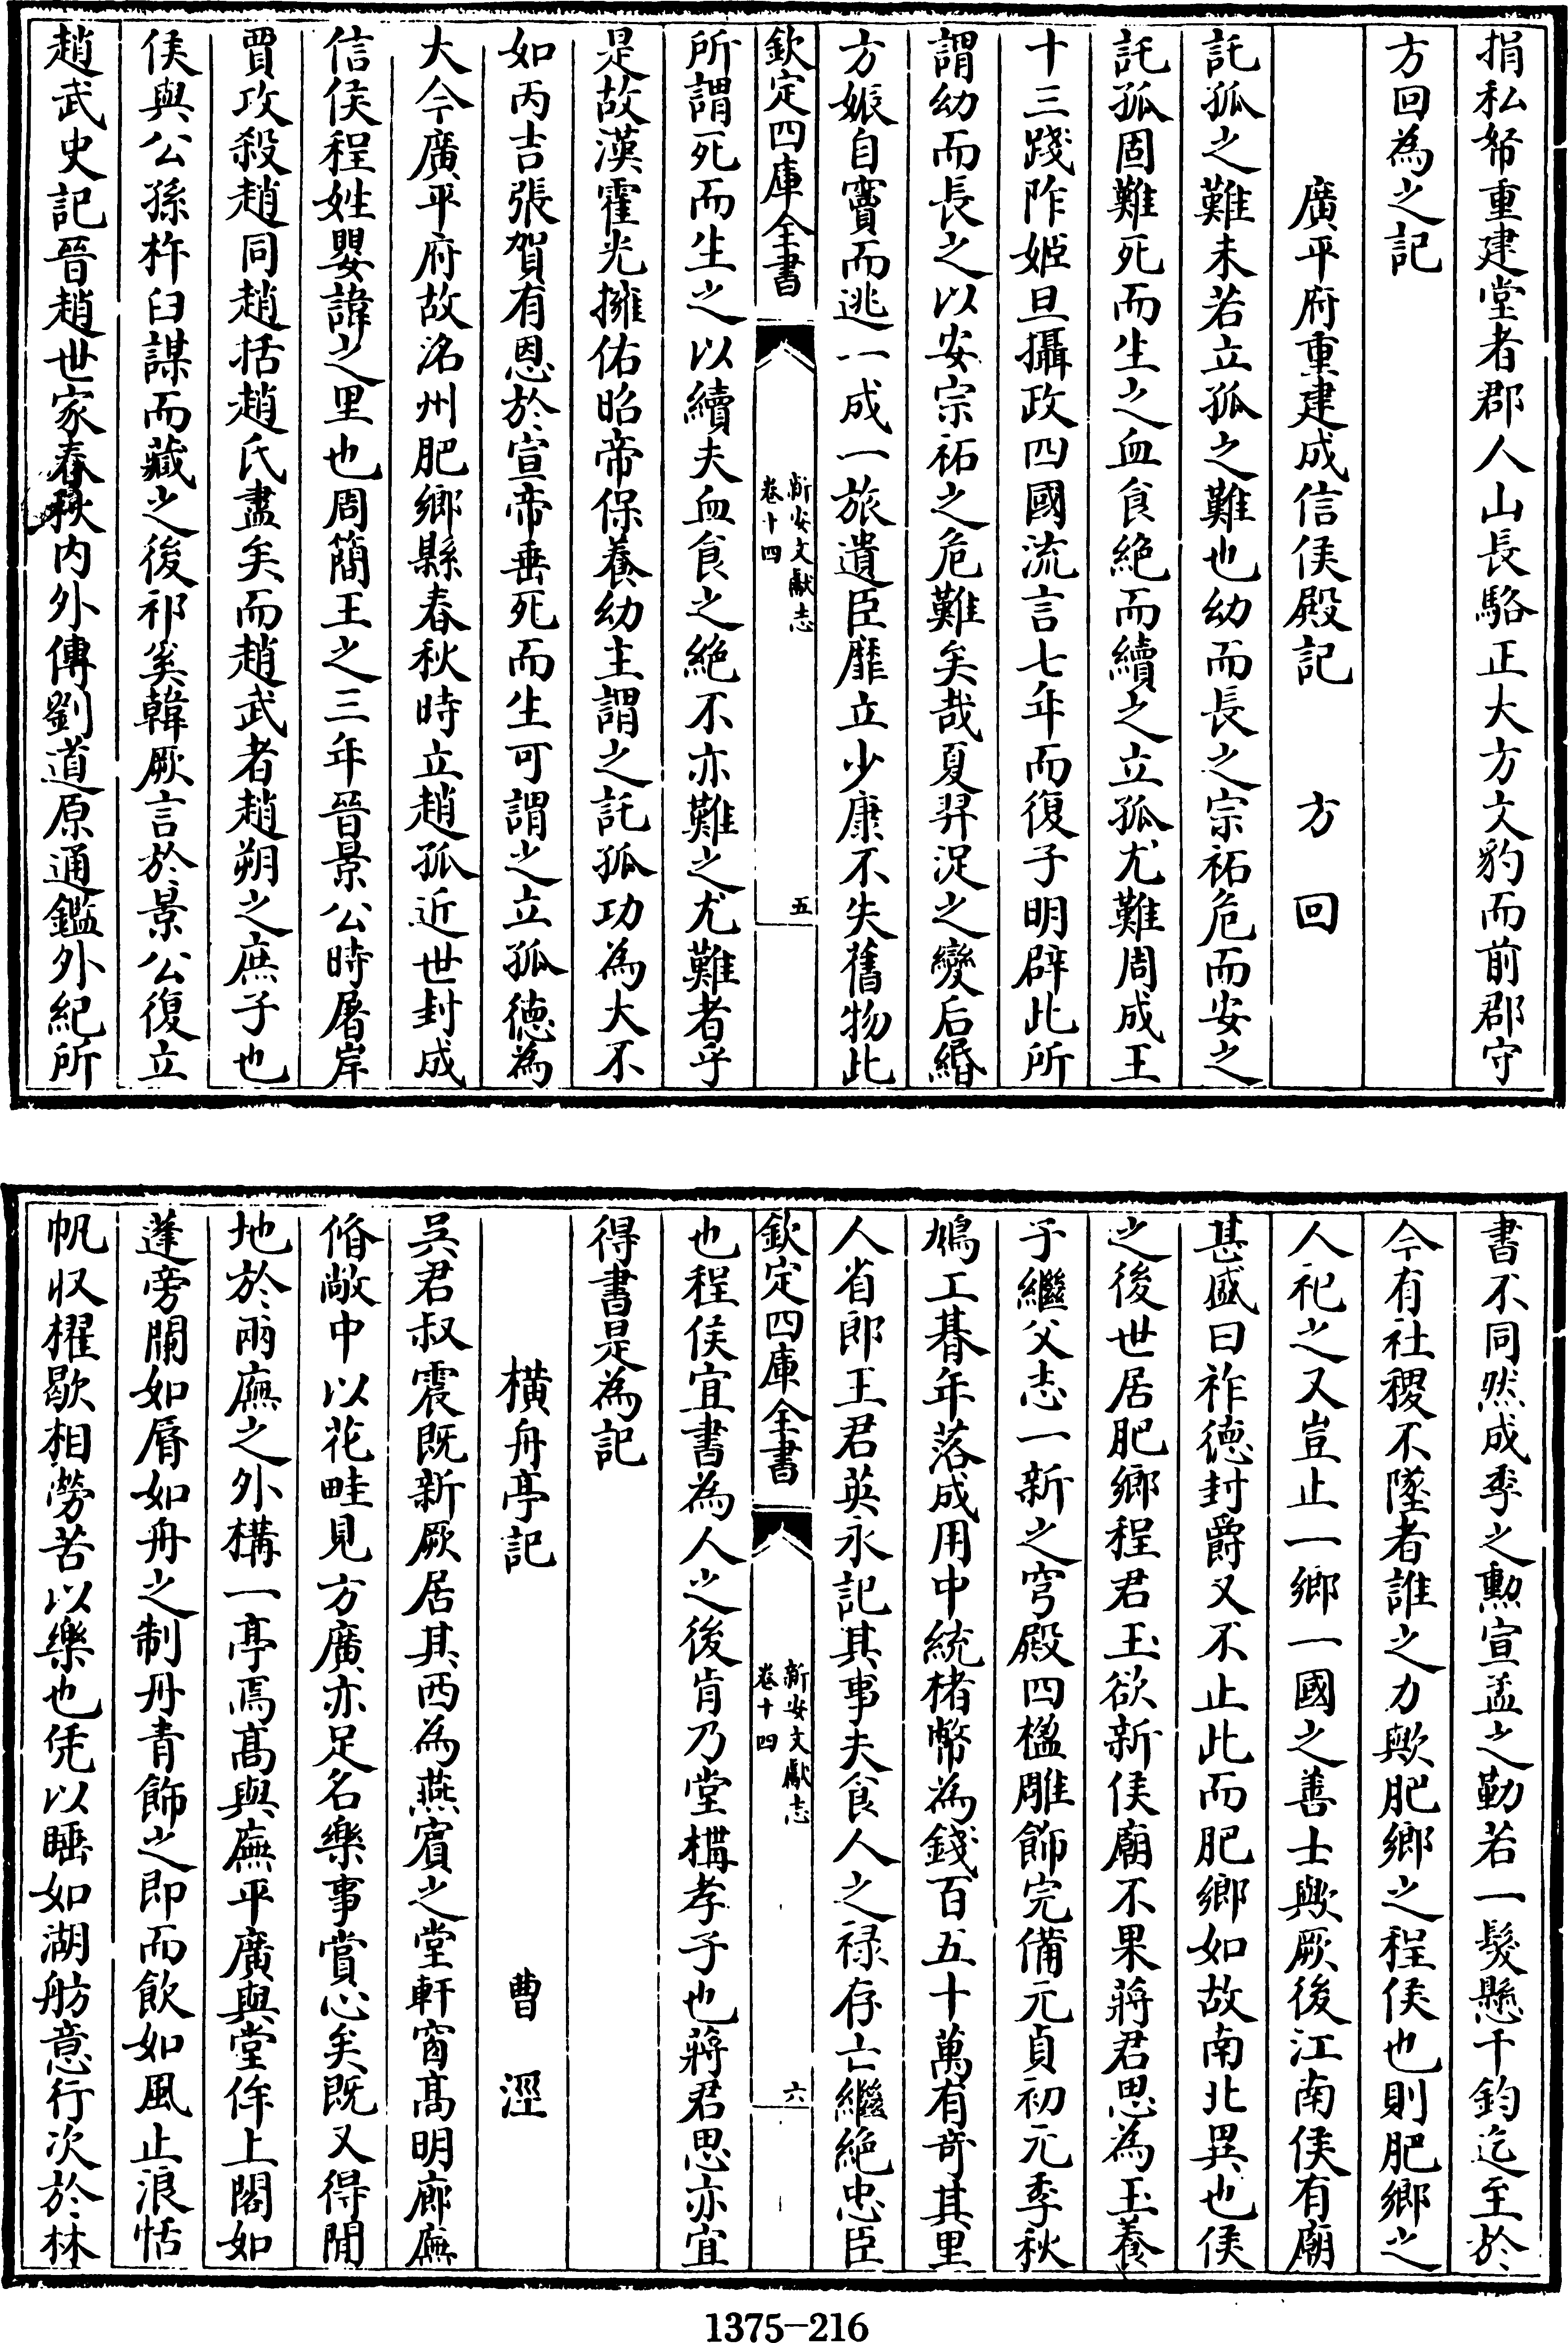 捐私帑重建堂者郡人山長駱正大方文豹而前郡守
方回為之記
廣平府重建成信侯殿記　方　回
託孤之難未若立孤之難也幼而長之宗祏危而安之
託孤固難死而生之血食絶而續之立孤尤難周成王
十三踐阼姬旦攝政四國流言七年而復子明辟此所
謂幼而長之以安宗祏之危難矣哉夏羿浞之變后緡
方娠自竇而逃一成一旅遺臣靡立少康不失舊物此
欽定四庫全書
新安文獻志
卷十四
五
所謂死而生之以續夫血食之絶不亦難之尤難者乎
是故漢霍光擁佑昭帝保養幼主謂之託孤功為大不
如丙吉張賀有恩於宣帝垂死而生可謂之立孤德為
大今廣平府故洺州肥鄉縣春秋時立趙孤近世封成
信侯程姓嬰諱之里也周簡王之三年晉景公時屠岸
賈攻殺趙同趙括趙氏盡矣而趙武者趙朔之庶子也
侯與公孫杵臼謀而藏之後祁奚韓厥言於景公復立
趙武史記晉趙世家春秋内外傳劉道原通鑑外紀所
書不同然成季之勲宣孟之勤若一髮懸千鈞迄至於
今有社稷不墜者誰之力歟肥鄉之程侯也則肥鄉之
人祀之又豈止一鄉一國之善士歟厥後江南侯有廟
甚盛曰祚德封爵又不止此而肥鄉如故南北異也侯
之後世居肥鄉程君玉欲新侯廟不果蔣君思為玉養
子繼父志一新之穹殿四楹雕飾完備元貞初元季秋
鳩工朞年落成用中統楮幣為錢百五十萬有奇其里
人省郎王君英永記其事夫食人之禄存亡繼絶忠臣
欽定四庫全書
新安文獻志
卷十四
六
也程侯宜書為人之後肯乃堂構孝子也蔣君思亦宜
得書是為記
橫舟亭記　曹　涇
吳君叔震既新厥居其西為燕賓之堂軒窗髙明廊廡
脩敞中以花畦見方廣亦足名樂事賞心矣既又得閒
地於兩廡之外構一亭焉髙與廡平廣與堂侔上閣如
蓬旁闌如脣如舟之制丹青飾之即而飲如風止浪恬
帆收櫂歇相勞苦以樂也凭以睡如湖舫意行次於林
1375-216